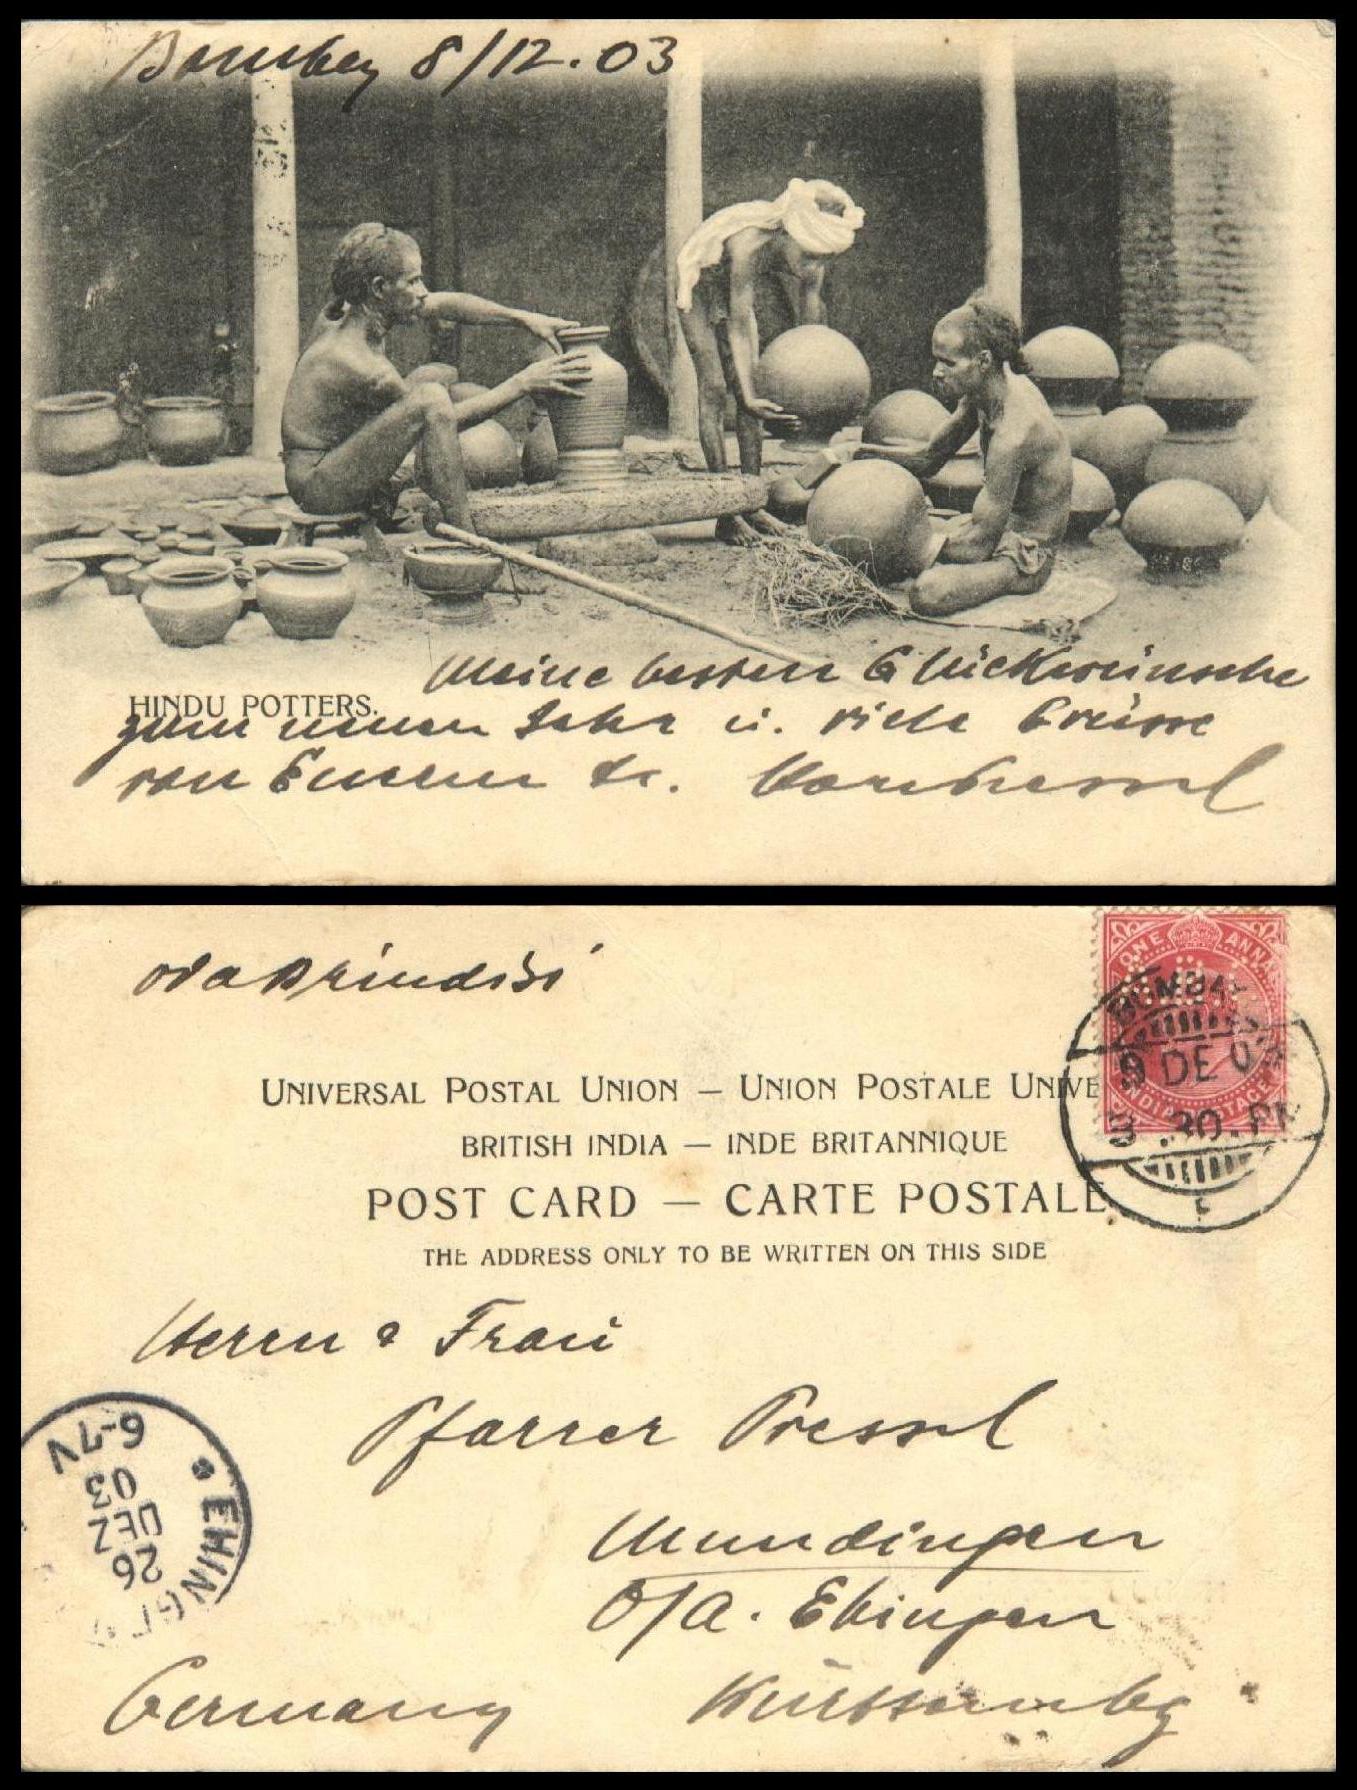 Bombay 8/12.03
HINDU POTTERS.
Meine besten Glückwünsche
zum neuen Jahr u. viele Grüsse
von Eurem tr.
via Brindisi
ONE ANNA
INDIA POSTAGE
BOMBAY
9 DE 03
3.30.PM
UNIVERSAL POSTAL UNION — UNION POSTALE UNIVE
BRITISH INDIA — INDE BRITANNIQUE
POST CARD — CARTE POSTALE.
THE ADDRESS ONLY TO BE WRITTEN ON THIS SIDE
Herrn & Frau
Pfarrer Pressel
Mundingen
O/A. Ehingen
Württembg
Germany
EHINGEN
26
DEZ
03
6-7V